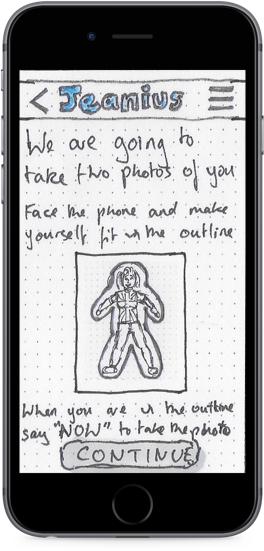 < Jeanius
We are going to
take two photos of you
Face the phone and make
yourself fit in the outline
When you are in the outline
say "NOW" to take the photo
CONTINUE